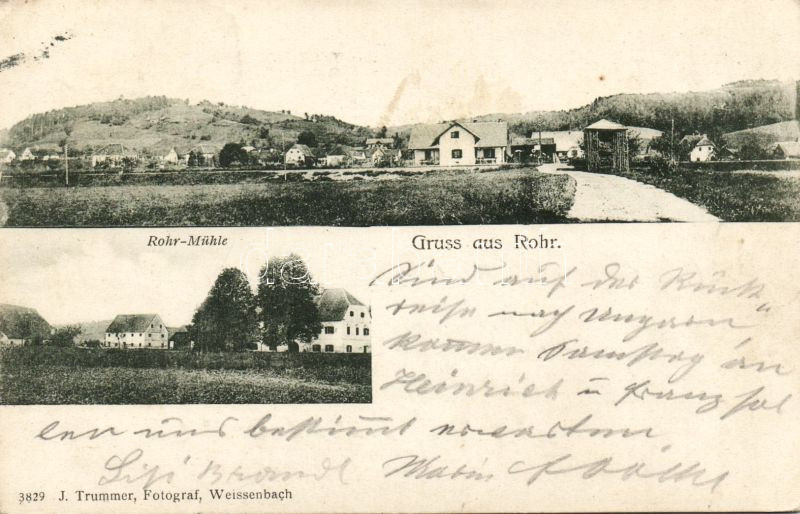 Rohr-Mühle
Gruss aus Rohr.
Sind auf der Rück
reise nach Ungarn
kommen Samstag an
Heinrich u Franz sol
len uns bestimmt erwarten
Brandl Marie
3829 J. Trummer, Fotograf, Weissenbach